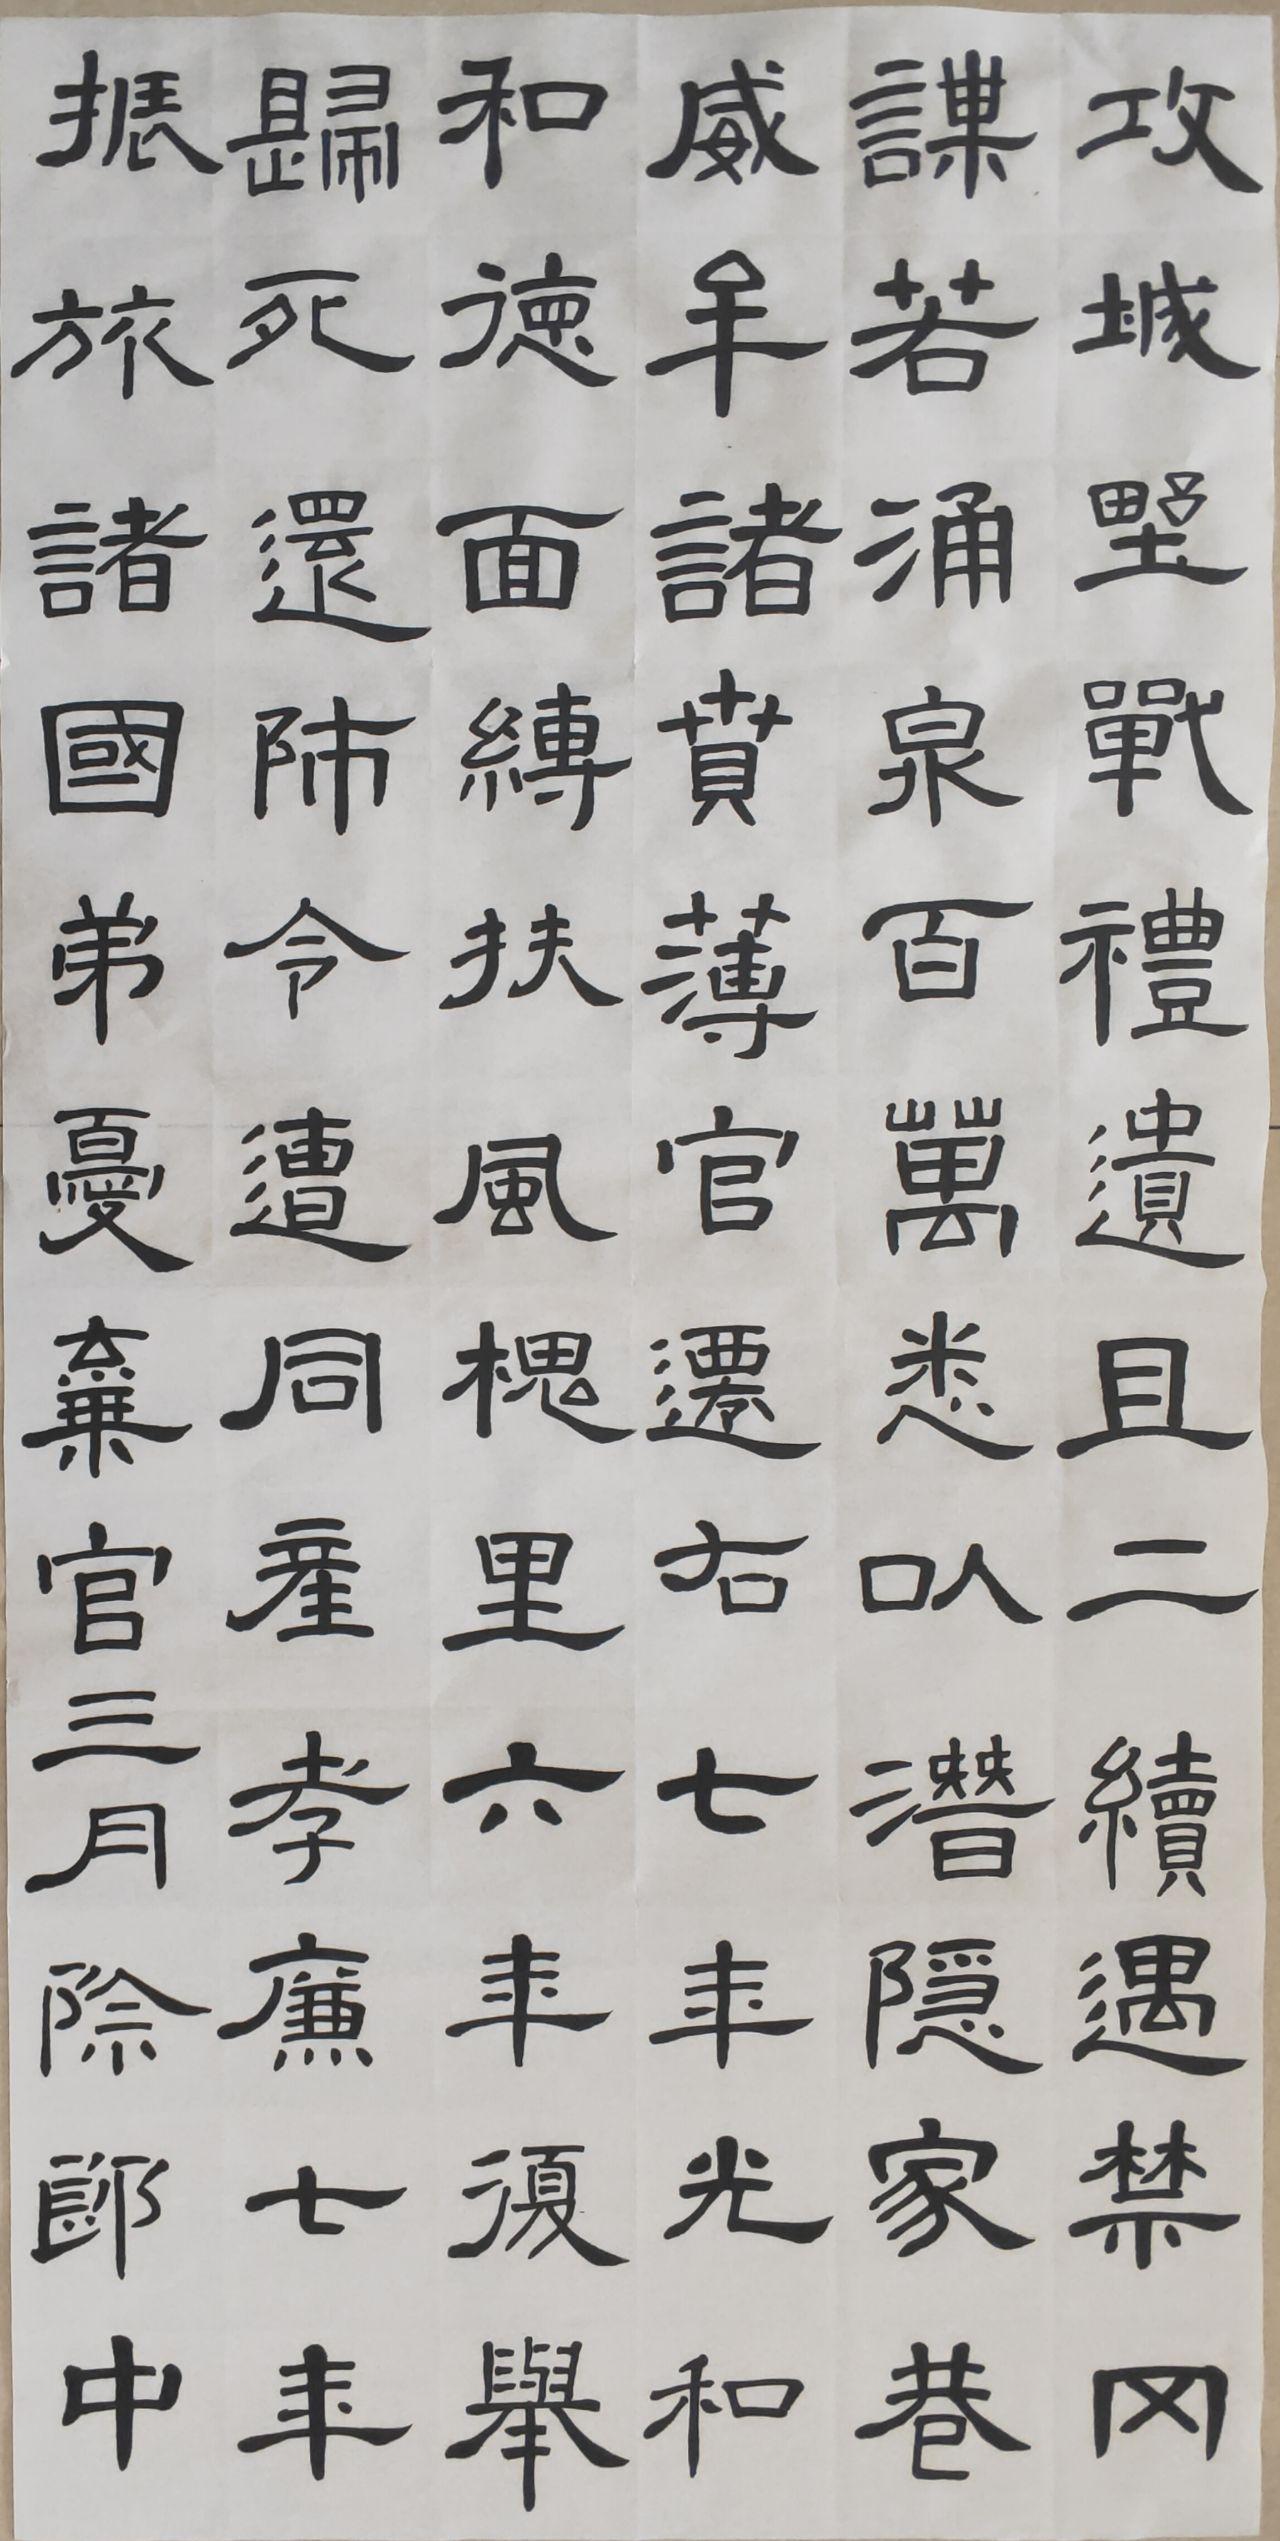 攻城墅戰禮遺且二續遇禁冈
謀若涌泉百萬悉以潛隱家巷
威牟諸賁薄官遷右七年光和
和德面縛扶風槐里六年復舉
歸死還師令遭同産孝廉七年
振旅諸國弟憂棄官三月除郎中